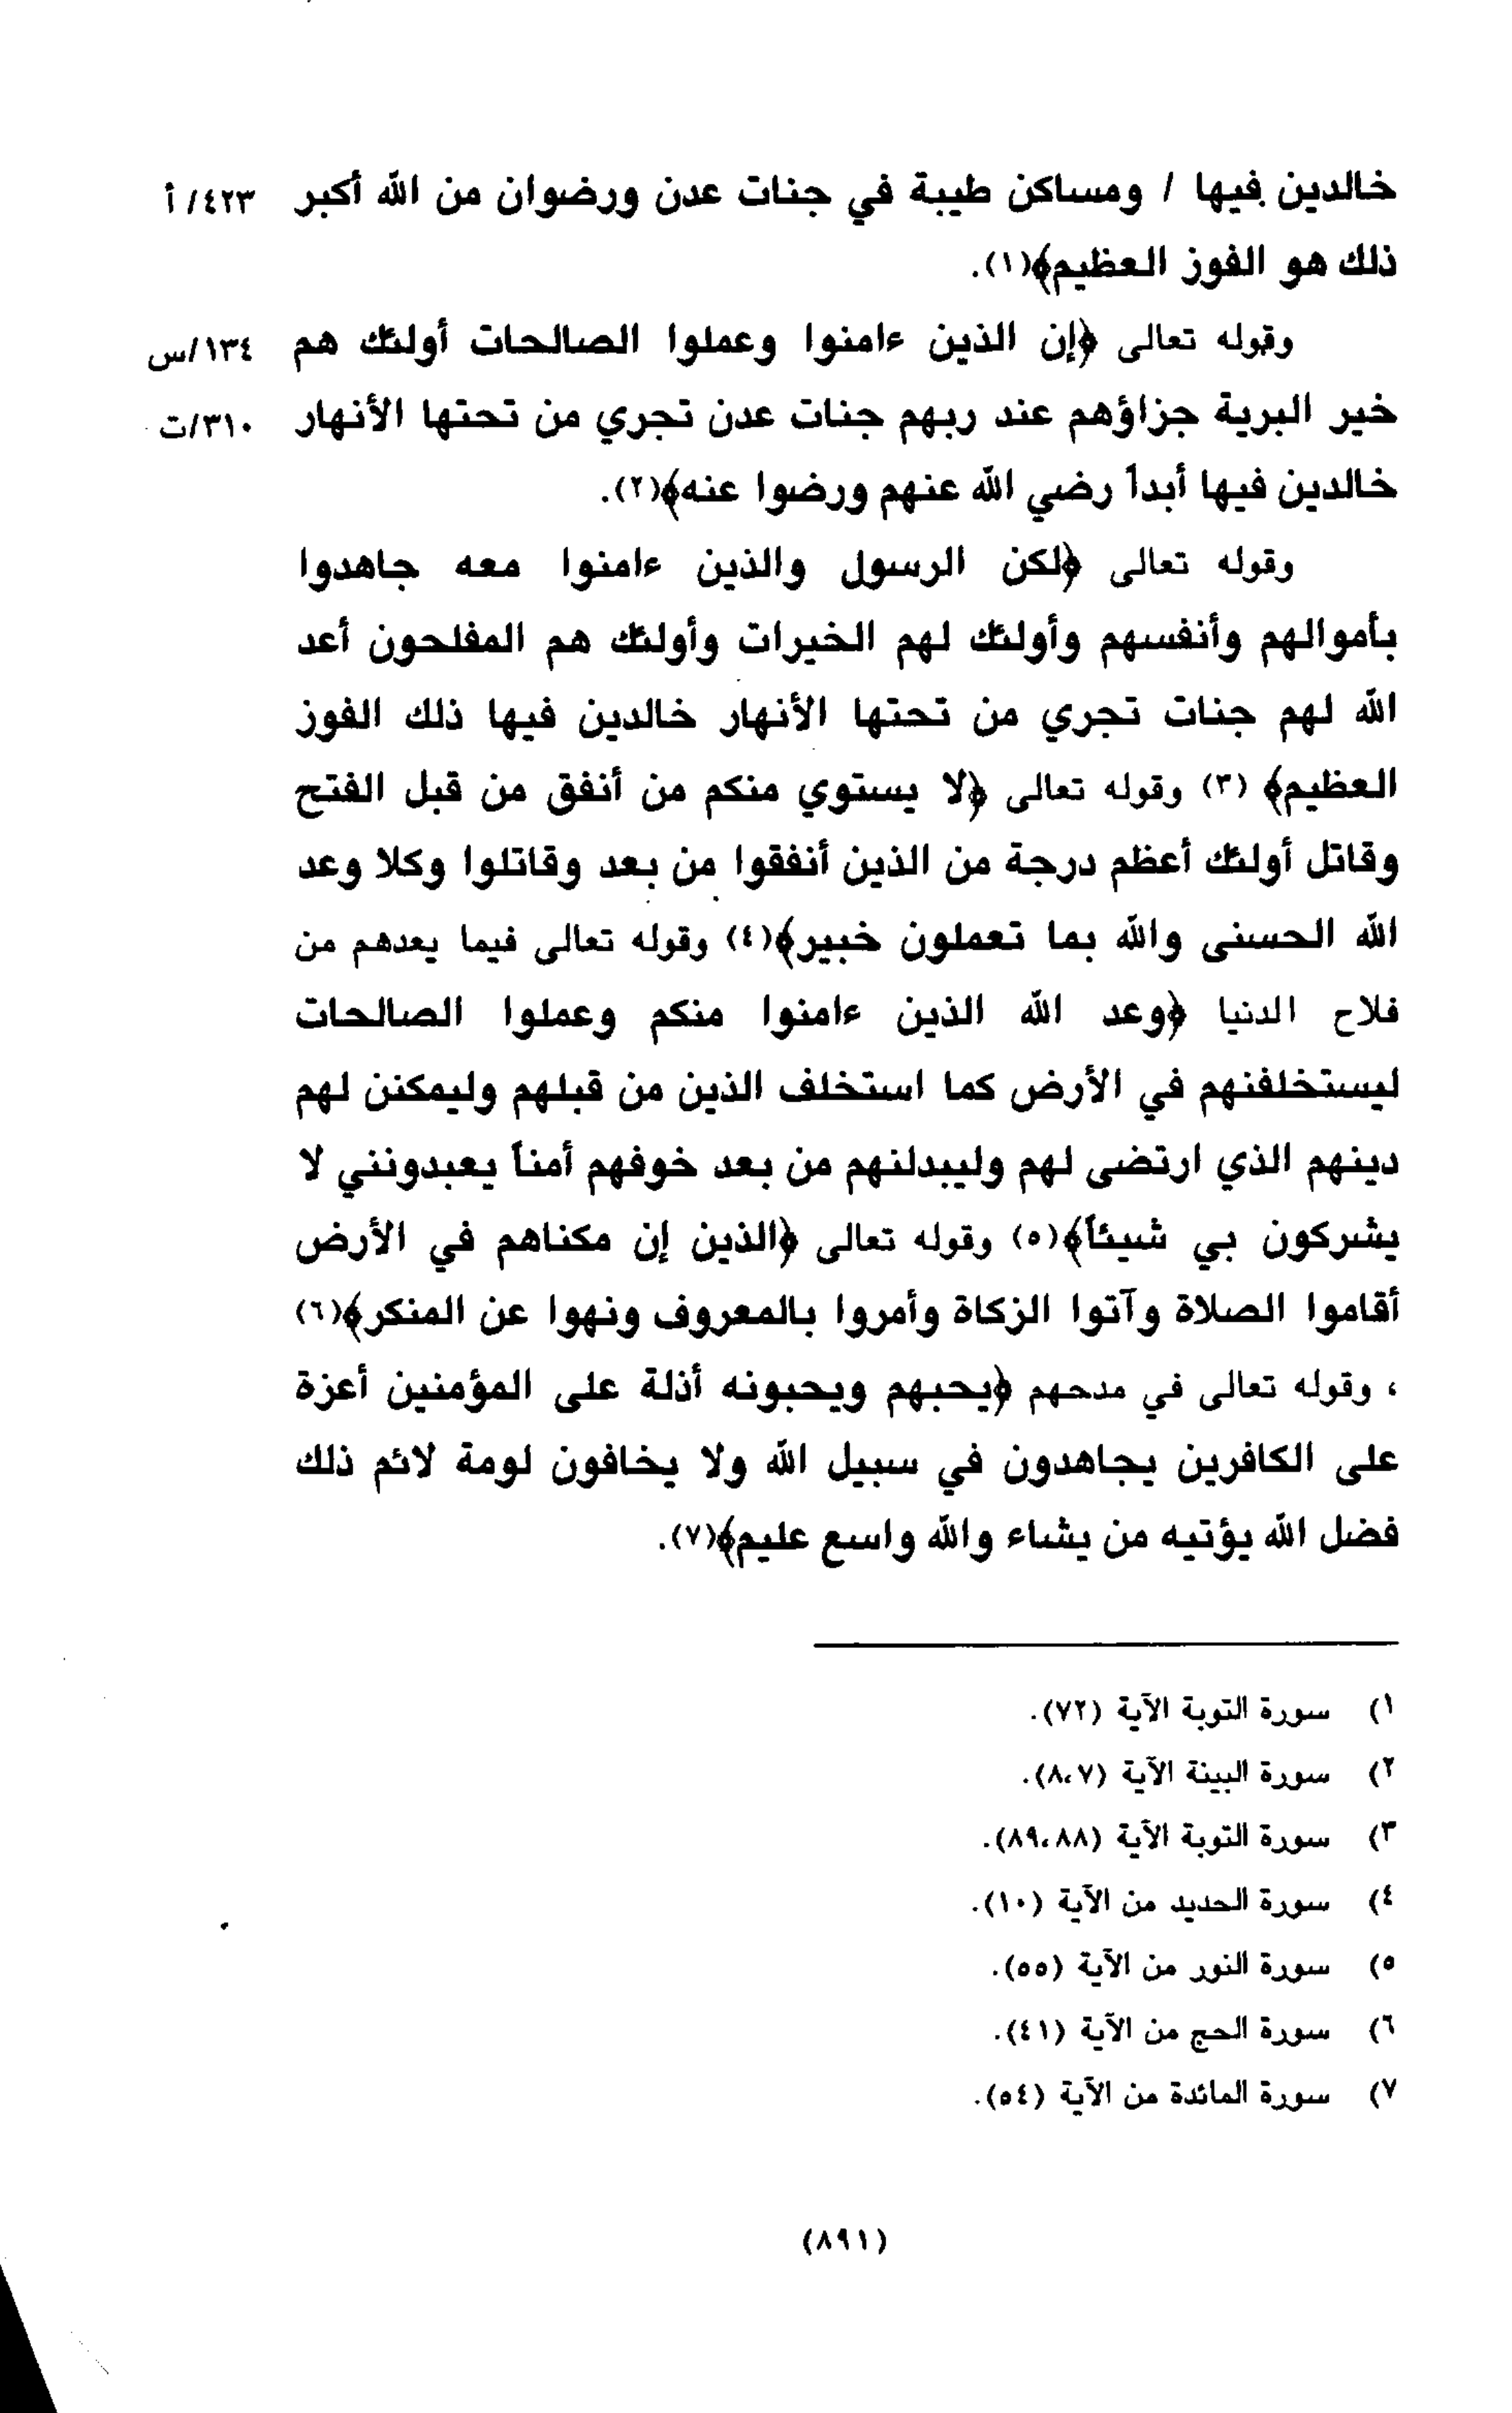 خالدين فيها / ومساكن طيبة في جنات عدن ورضوان من الله أكبر ٤٢٣/ أ
ذلك هو الفوز العظيم﴾(١).
وقوله تعالى ﴿إن الذين ءامنوا وعملوا الصالحات أولئك هم ١٣٤/س
خير البرية جزاؤهم عند ربهم جنات عدن تجري من تحتها الأنهار ٣١٠/ت
خالدين فيها أبداً رضي الله عنهم ورضوا عنه﴾(٢).
وقوله تعالى ﴿لكن الرسول والذين ءامنوا معه جاهدوا
بأموالهم وأنفسهم وأولئك لهم الخيرات وأولئك هم المفلحون أعد
الله لهم جنات تجري من تحتها الأنهار خالدين فيها ذلك الفوز
العظيم﴾ (٣) وقوله تعالى ﴿لا يستوي منكم من أنفق من قبل الفتح
وقاتل أولئك أعظم درجة من الذين أنفقوا من بعد وقاتلوا وكلا وعد
الله الحسنى والله بما تعملون خبير﴾(٤) وقوله تعالى فيما يعدهم من
فلاح الدنيا ﴿وعد الله الذين ءامنوا منكم وعملوا الصالحات
ليستخلفنهم في الأرض كما استخلف الذين من قبلهم وليمكنن لهم
دينهم الذي ارتضى لهم وليبدلنهم من بعد خوفهم أمناً يعبدونني لا
يشركون بي شيئاً﴾(٥) وقوله تعالى ﴿الذين إن مكناهم في الأرض
أقاموا الصلاة وآتوا الزكاة وأمروا بالمعروف ونهوا عن المنكر﴾(٦)
، وقوله تعالى في مدحهم ﴿يحبهم ويحبونه أذلة على المؤمنين أعزة
على الكافرين يجاهدون في سبيل الله ولا يخافون لومة لائم ذلك
فضل الله يؤتيه من يشاء والله واسع عليم﴾(٧).
١) سورة التوبة الآية (٧٢).
٢) سورة البينة الآية (٨،٧).
٣) سورة التوبة الآية (٨٩،٨٨).
٤) سورة الحديد من الآية (١٠).
٥) سورة النور من الآية (٥٥).
٦) سورة الحج من الآية (٤١).
٧) سورة المائدة من الآية (٥٤).
(٨٩١)